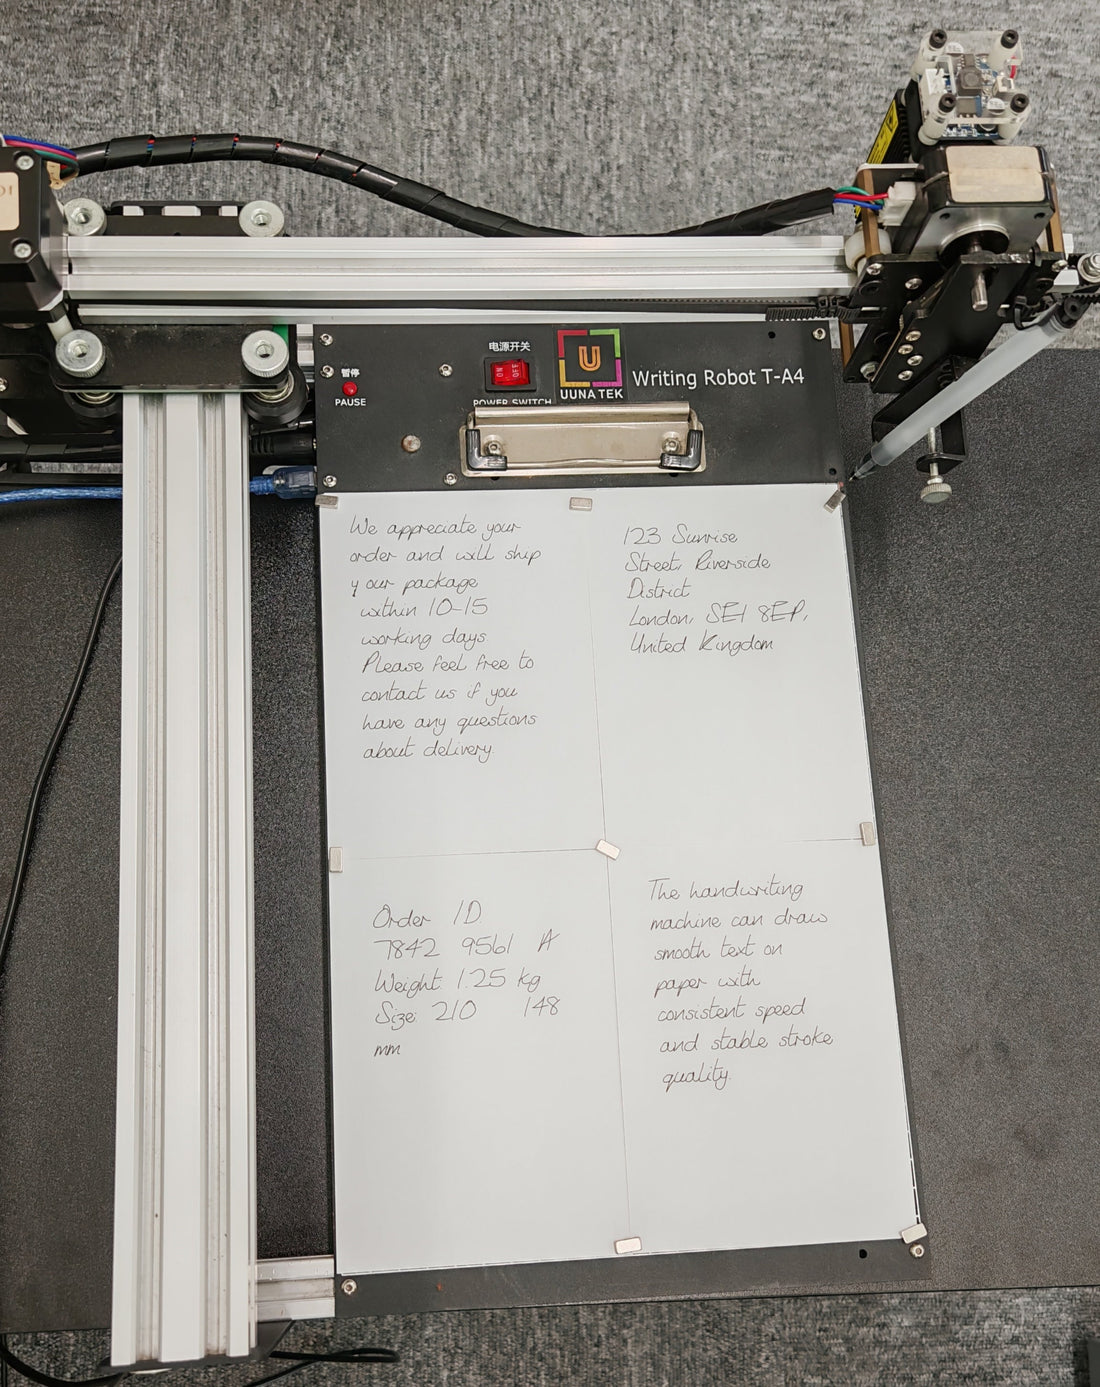 电源开关
暂停
PAUSE
ON OFF
POWER SWITCH
U
UUNA TEK
Writing Robot T-A4
We appreciate your
order and will ship
your package
within 10-15
working days
Please feel free to
contact us if you
have any questions
about delivery.
123 Sunrise
Street, Riverside
District
London, SE1 8EP,
United Kingdom
Order ID
7842 9561 A
Weight: 1.25 kg
Size: 210 148
mm
The handwriting
machine can draw
smooth text on
paper with
consistent speed
and stable stroke
quality.